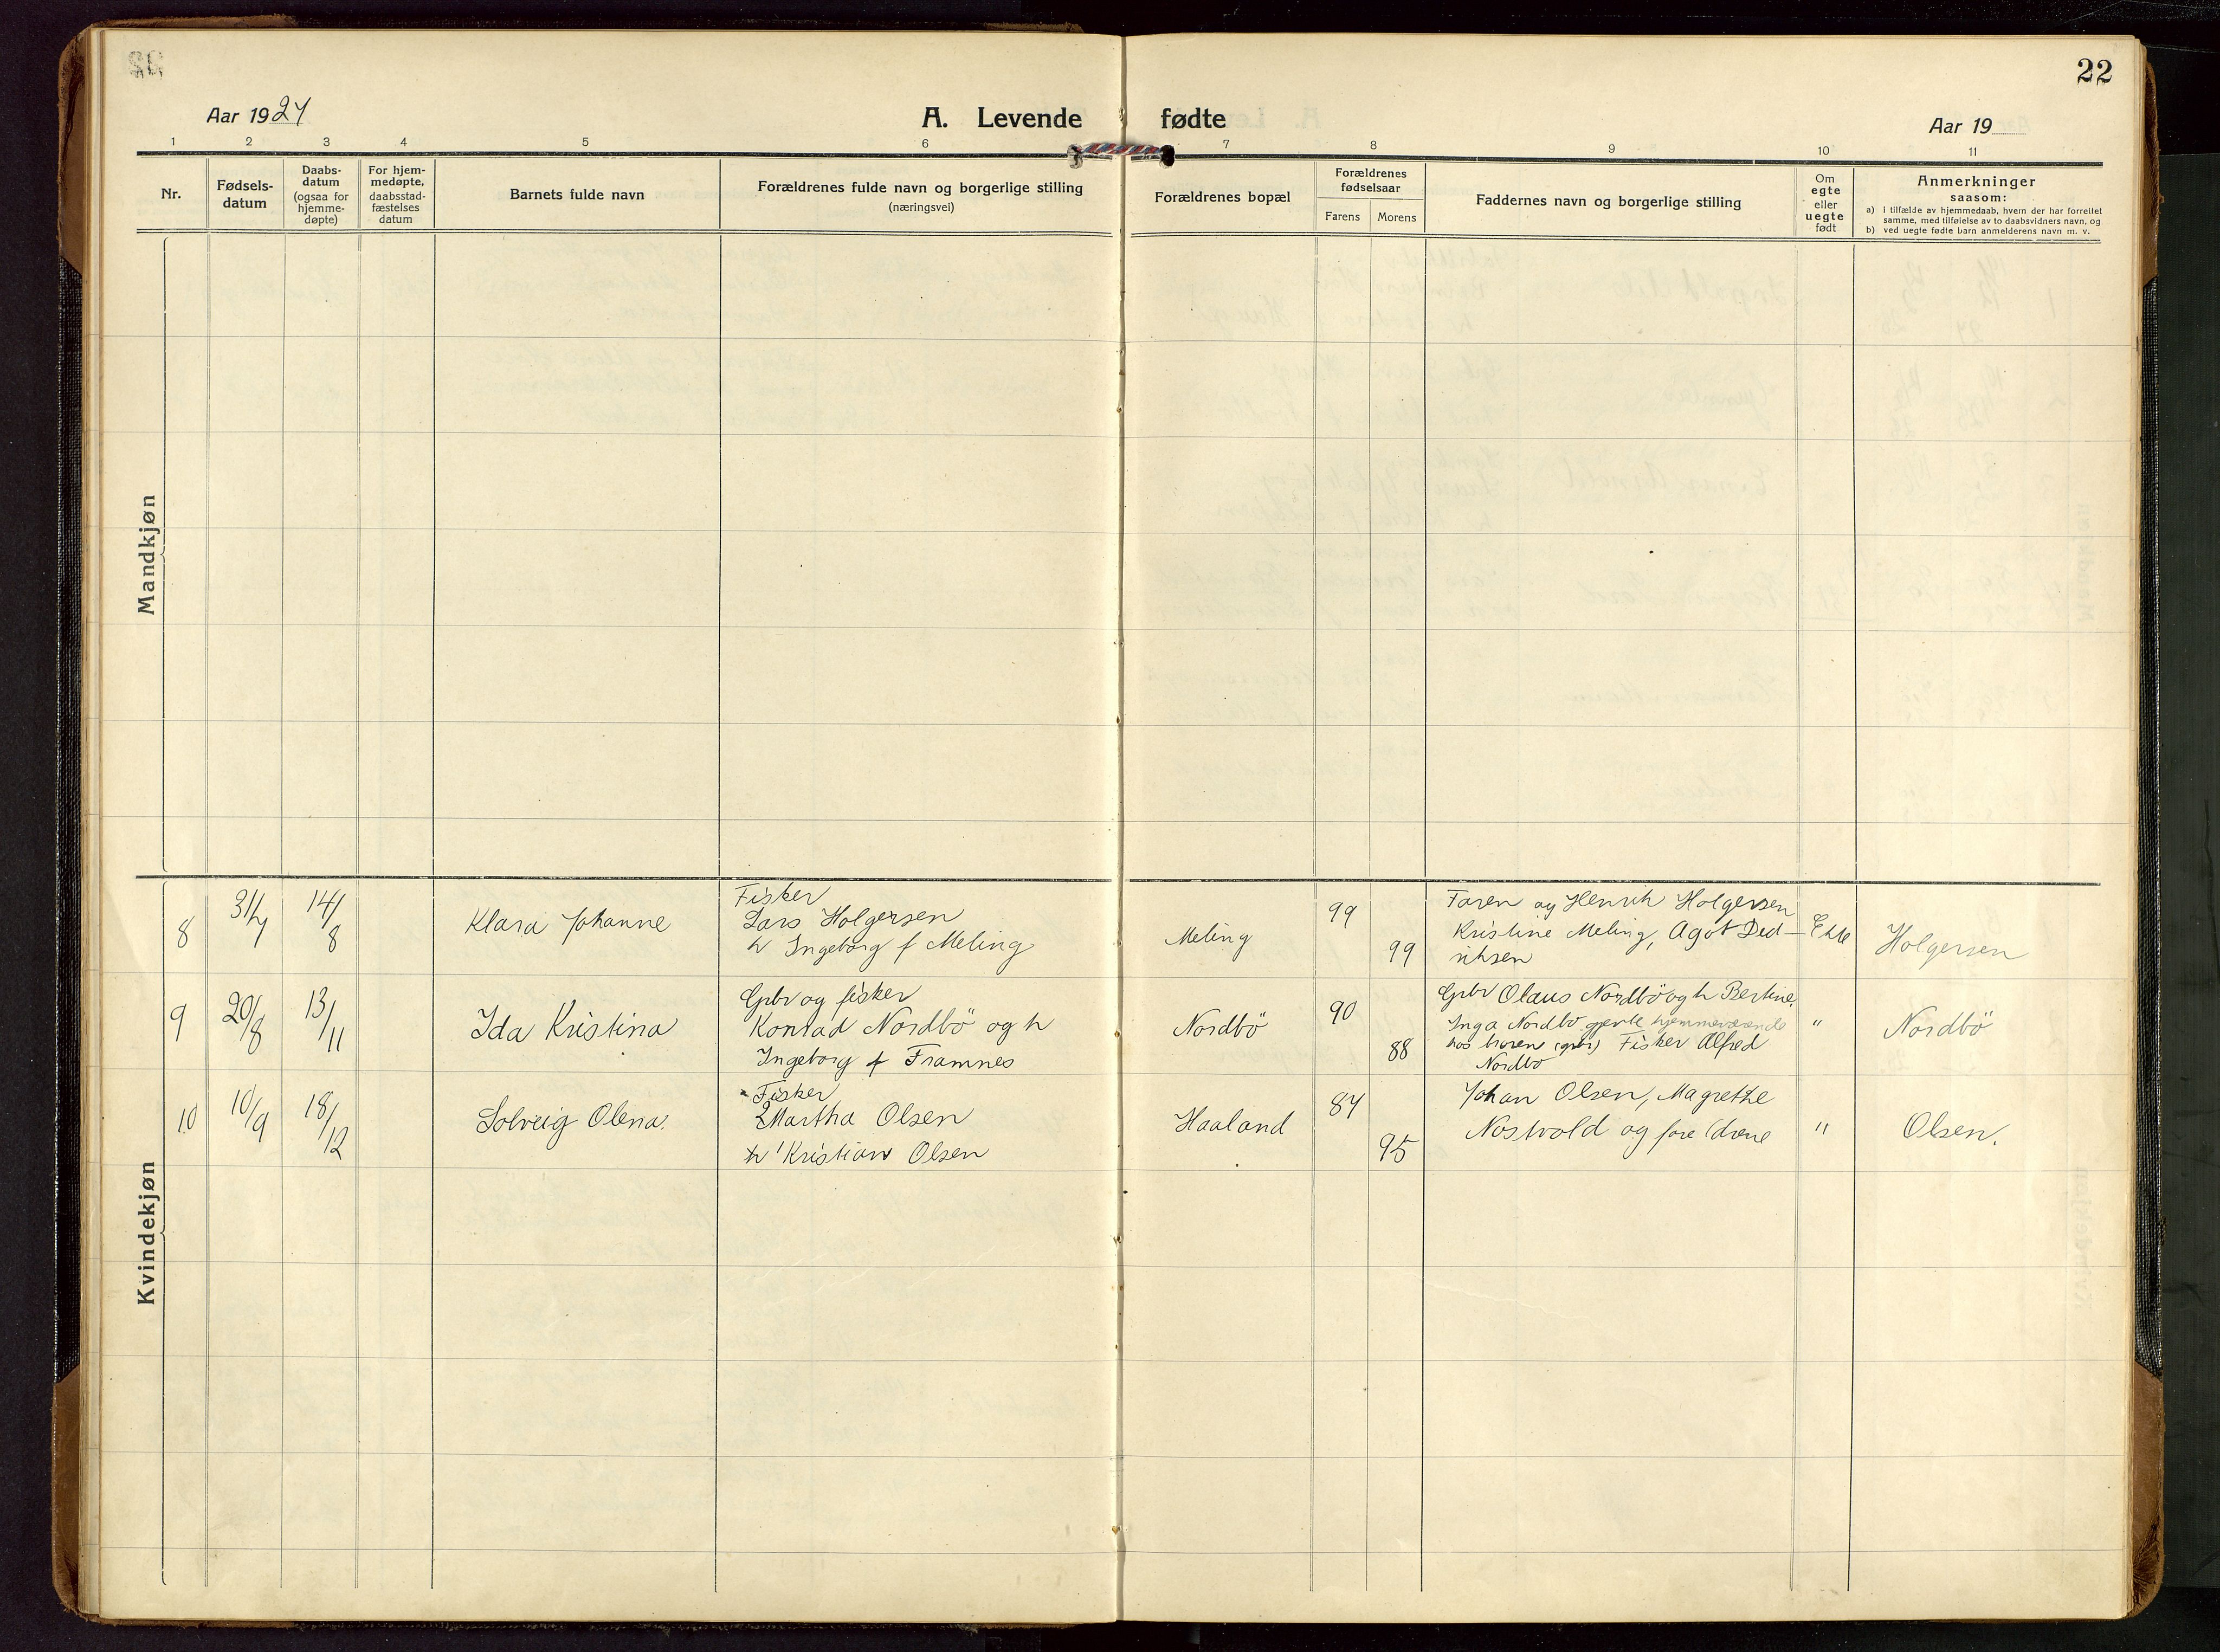 22
Aar 1924
A. Levende fødte
Aar 19
1 2 3 4 5 6 7 8 9 10 11
Nr.
Fødsels-
datum
Daabs-
datum
(ogsaa for
hjemme-
døpte)
For hjem-
medøpte,
daabsstad-
fæstelses
datum
Barnets fulde navn
Forældrenes fulde navn og borgerlige stilling
(næringsvei)
Forældrenes bopæl
Forældrenes
fødselsaar
Farens
Morens
Faddernes navn og borgerlige stilling
Om
egte
eller
uegte
født
Anmerkninger
saasom:
a) i tilfælde av hjemmedaab, hvem der har forrettet
samme, med tilføielse av to daabsvidners navn, og
b) ved uegte fødte barn anmelderens navn m. v.
Mandkjøn
Kvindekjøn
8
31/7
14/8
Klara Johanne
Fisker
Lars Holgersen
h Ingeborg f Meling
Meling
99
99
Faren og Henrik Holgersen
Kristine Meling, Agot Did-
riksen
Ekte
Holgersen
9
20/8
13/11
Ida Kristina
Gbr og fisker
Konrad Nordbö og h
Ingeborg f Framnes
Nordbö
90
88
Gbr Olaus Nordbö og h Bertine,
Inga Nordbö gjente hjemmeværende
hos broren (gbr) Fisker Alfred
Nordbö
"
Nordbö
10
10/9
18/12
Solveig Olena.
Fisker
2 Martha Olsen
h 1 Kristian Olsen
Haaland
84
95
Johan Olsen, Magrethe
Nostvold og foreldrene
"
Olsen.